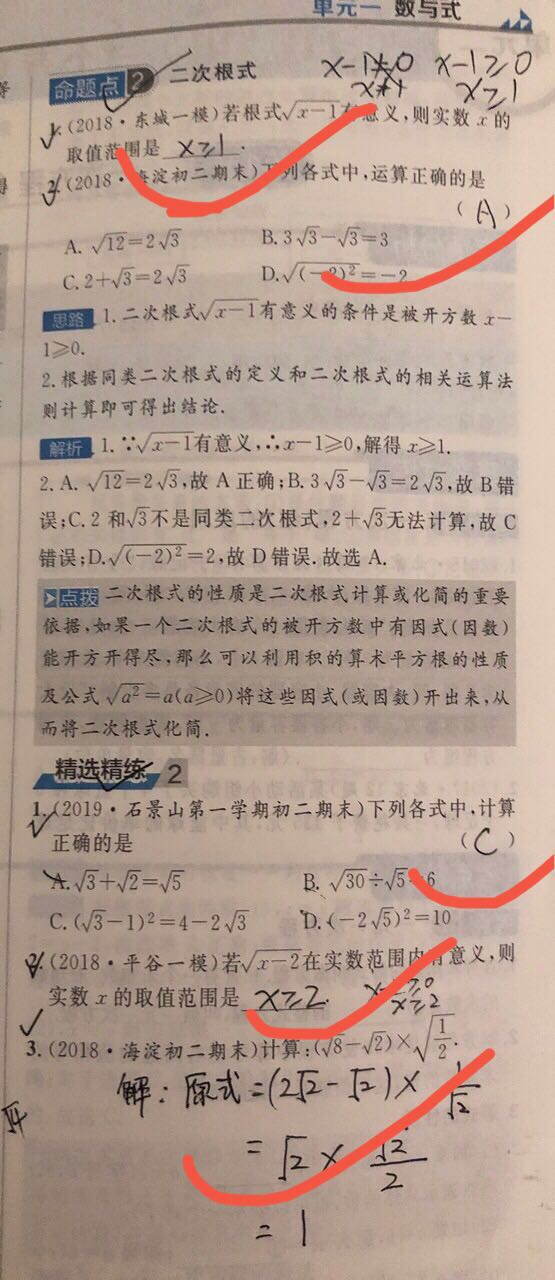 单元一 数与式
命题点2 二次根式
x-1≠0 x-1≥0
x≠1 x≥1
1.(2018·东城一模)若根式√x-1有意义,则实数x的
取值范围是 x≥1.
2.(2018·海淀初二期末)下列各式中,运算正确的是
(A)
A. √12=2√3 B. 3√3-√3=3
C. 2+√3=2√3 D. √(-2)²=-2
思路 1.二次根式√x-1有意义的条件是被开方数x-
1≥0.
2.根据同类二次根式的定义和二次根式的相关运算法
则计算即可得出结论.
解析 1.∵√x-1有意义,∴x-1≥0,解得x≥1.
2. A. √12=2√3,故A正确;B. 3√3-√3=2√3,故B错
误;C. 2和√3不是同类二次根式,2+√3无法计算,故C
错误;D. √(-2)²=2,故D错误.故选A.
点拨 二次根式的性质是二次根式计算或化简的重要
依据,如果一个二次根式的被开方数中有因式(因数)
能开方开得尽,那么可以利用积的算术平方根的性质
及公式√a²=a(a≥0)将这些因式(或因数)开出来,从
而将二次根式化简.
精选精练 2
1.(2019·石景山第一学期初二期末)下列各式中,计算
正确的是 (C)
A. √3+√2=√5 B. √30÷√5=6
C. (√3-1)²=4-2√3 D. (-2√5)²=10
2.(2018·平谷一模)若√x-2在实数范围内有意义,则
实数x的取值范围是 x≥2. x≥2
3.(2018·海淀初二期末)计算:(√8-√2)×√1/2.
解:原式=(2√2-√2)×1/√2
=√2×√2/2
=1